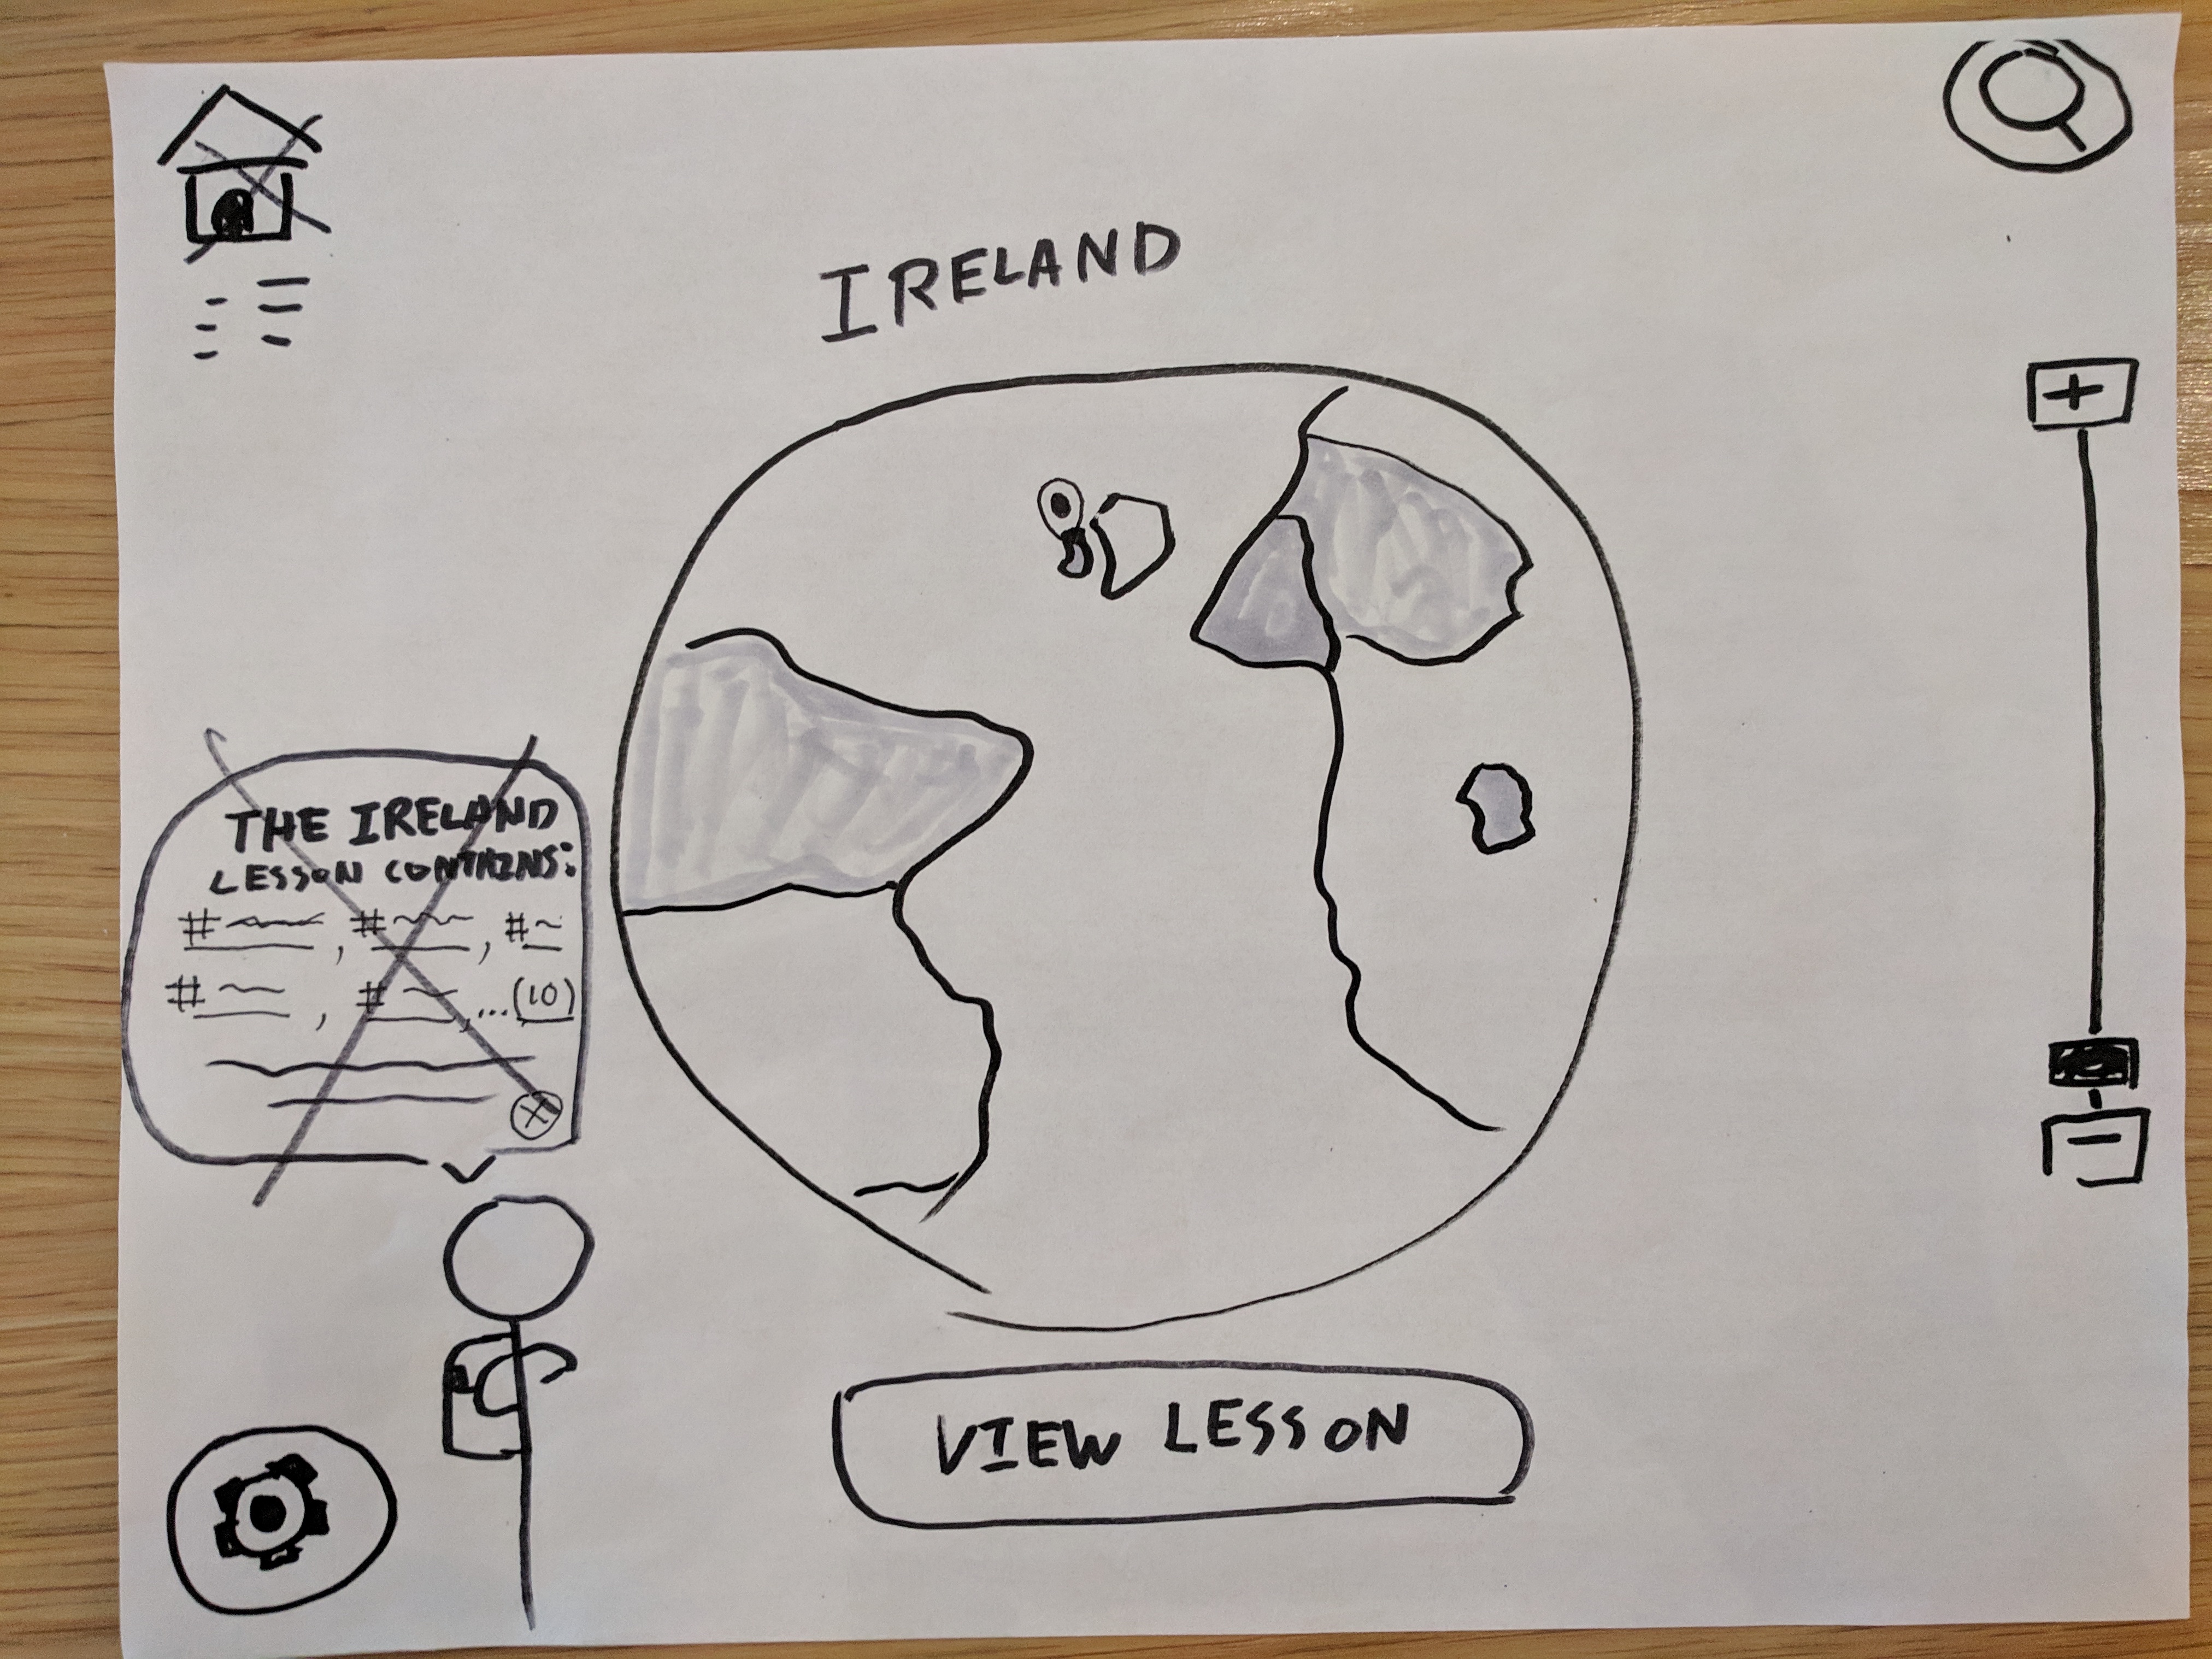 IRELAND
+
THE IRELAND
LESSON CONTAINS:
# , # , #
# , # , ...(10)
X
-
VIEW LESSON